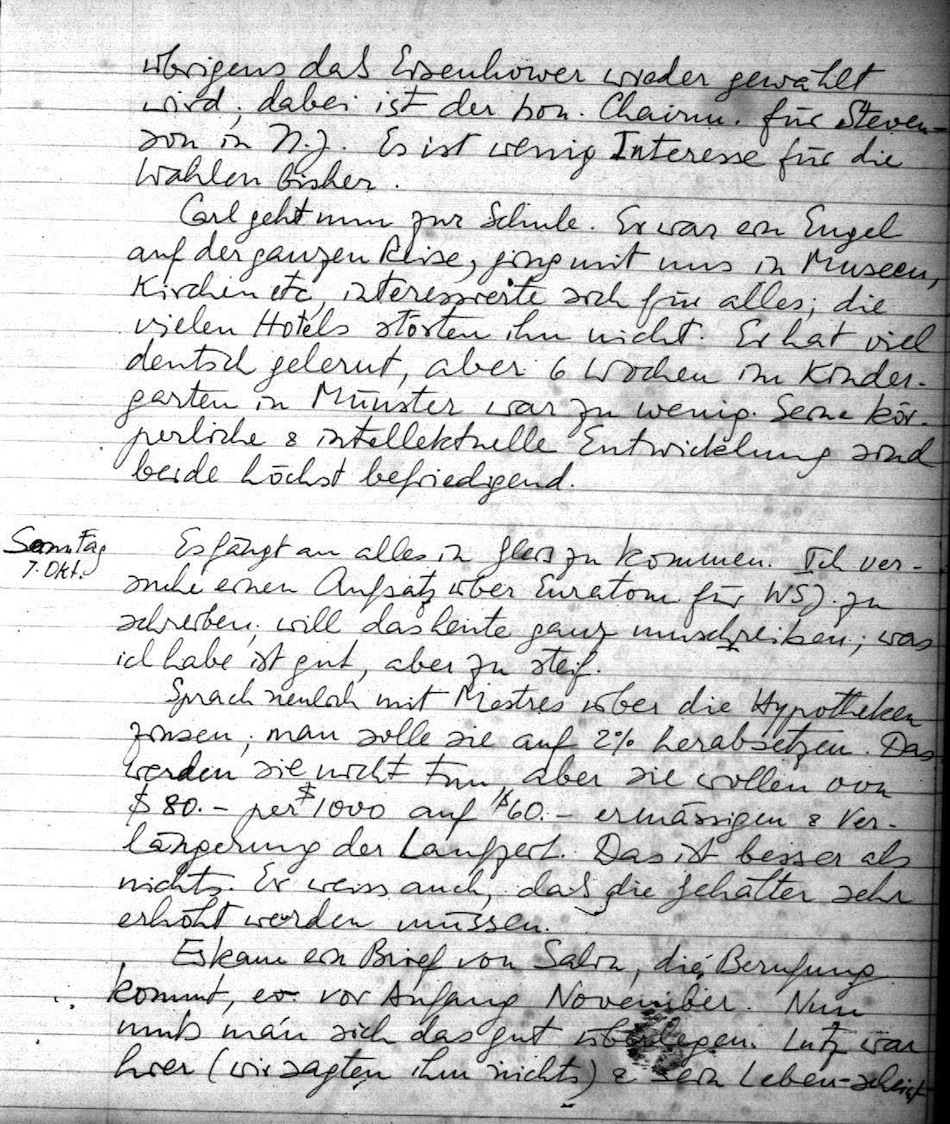 übrigens daß Eisenhower wieder gewählt
wird; dabei ist der hon. Chairm. für Steven-
son in N.J. Es ist wenig Interesse für die
Wahlen bisher.
Carl geht nun zur Schule. Er war ein Engel
auf der ganzen Reise, ging mit uns in Museen,
Kirchen etc, interessierte sich für alles; die
vielen Hotels störten ihn nicht. Er hat viel
deutsch gelernt, aber 6 Wochen im Kinder-
garten in Münster war zu wenig. Seine kör-
perliche & intellektuelle Entwicklung sind
beide höchst befriedigend.
Sonntag
7. Okt.
Es fängt an alles in Fluss zu kommen. Ich ver-
suche einen Aufsatz über Euratom für WSJ. zu
schreiben; will das heute ganz umschreiben; was
ich habe ist gut, aber zu steif.
Sprach neulich mit Mestres über die Hypotheken
zinsen; man solle sie auf 2% herabsetzen. Das
werden sie nicht tun aber sie wollen von
$80.- per $1000 auf $60.- ermässigen & Ver-
längerung der Laufzeit. Das ist besser als
nichts. Er weiss auch, daß die Gehälter sehr
erhöht werden müssen.
Es kam ein Brief von Salin, die Berufung
kommt, ev. vor Anfang November. Nun
muß man sich das gut überlegen. Lutz war
hier (wir sagten ihm nichts) & sein Leben scheint